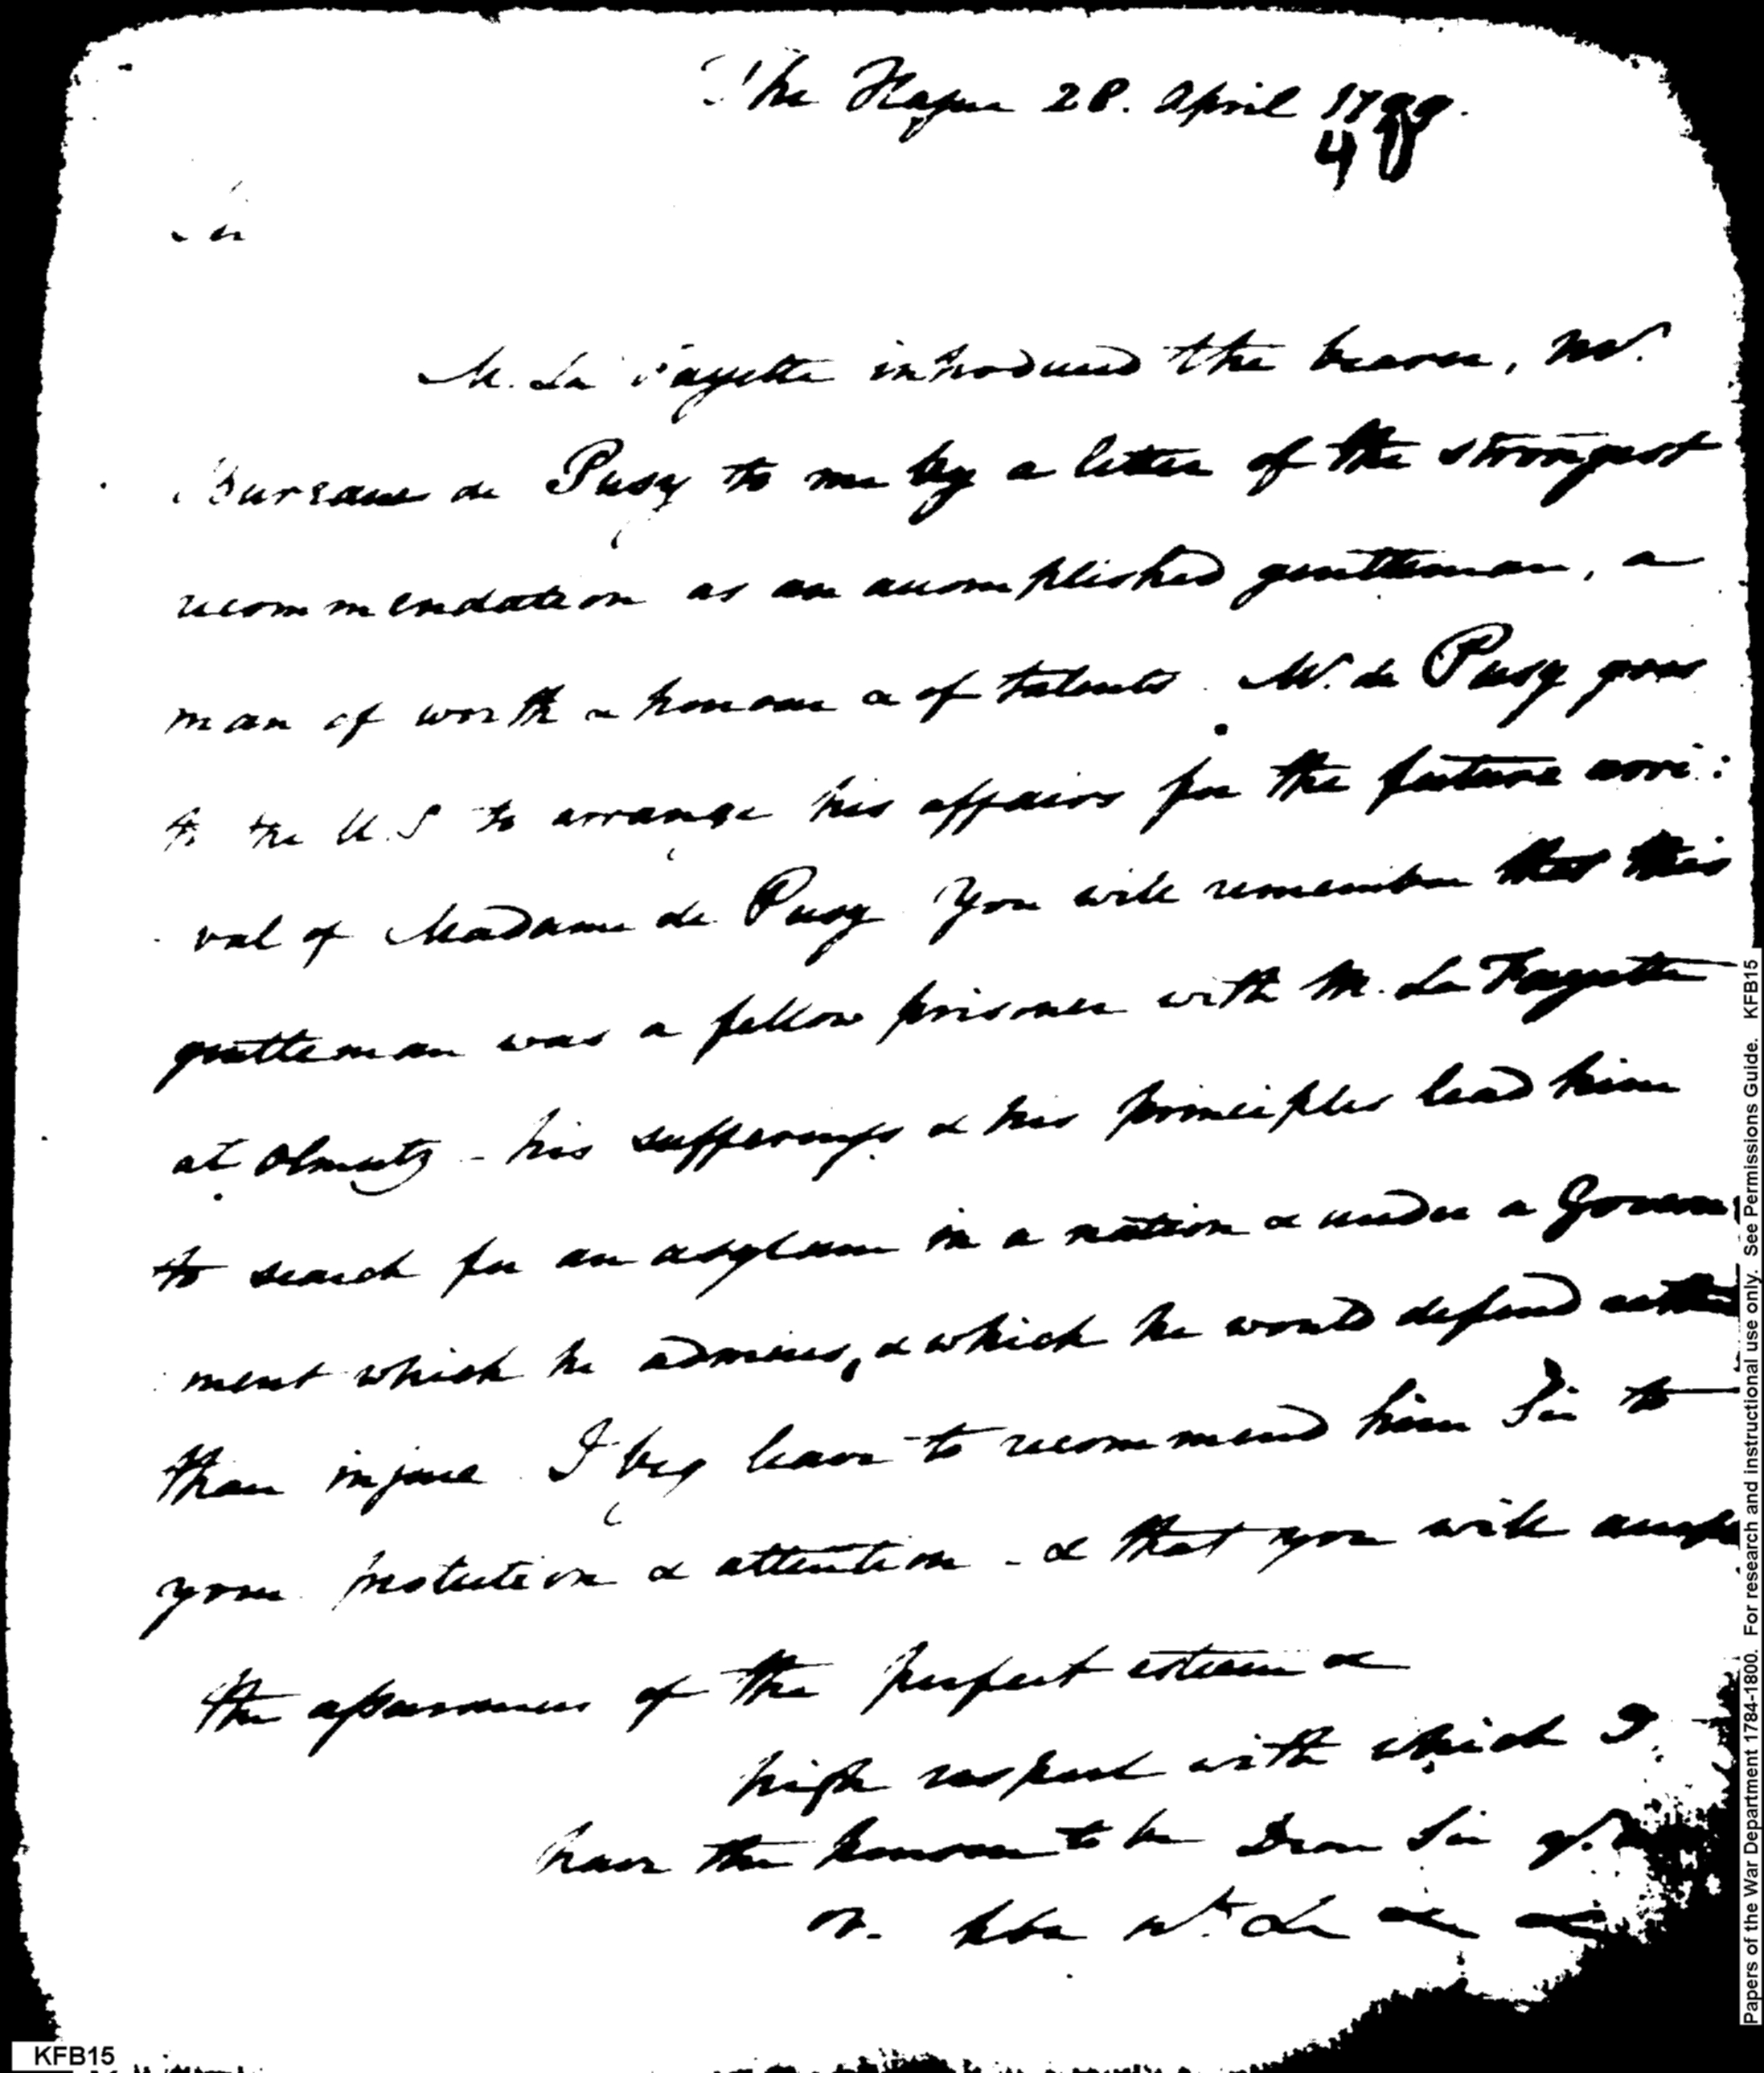 The Hague 28. April 1799.
Sir
M. La Fayette introduced the bearer, Mr.
Bureaux de Pusy to me by a letter of the strongest
recommendation as an accomplished gentleman, a
man of worth & honour & of talents. Mr. de Pusy goes
to the U.S to arrange his affairs for the future arri:
val of Madame de Pusy. You will remember that this
gentleman was a fellow prisoner with M. La Fayette
at Olmutz - his sufferings & his principles lead him
to search for an asylum in a nation & under a Govern
ment which he admires, & which he would defend
than injure. I beg leave to recommend him Sir to
your protection & attention - & that you will accept
the assurances of the perfect esteem &
high respect with which I
have the honour to be Dear Sir
&c &c
Papers of the War Department 1784-1800. For research and instructional use only. See Permissions Guide. KFB15
KFB15